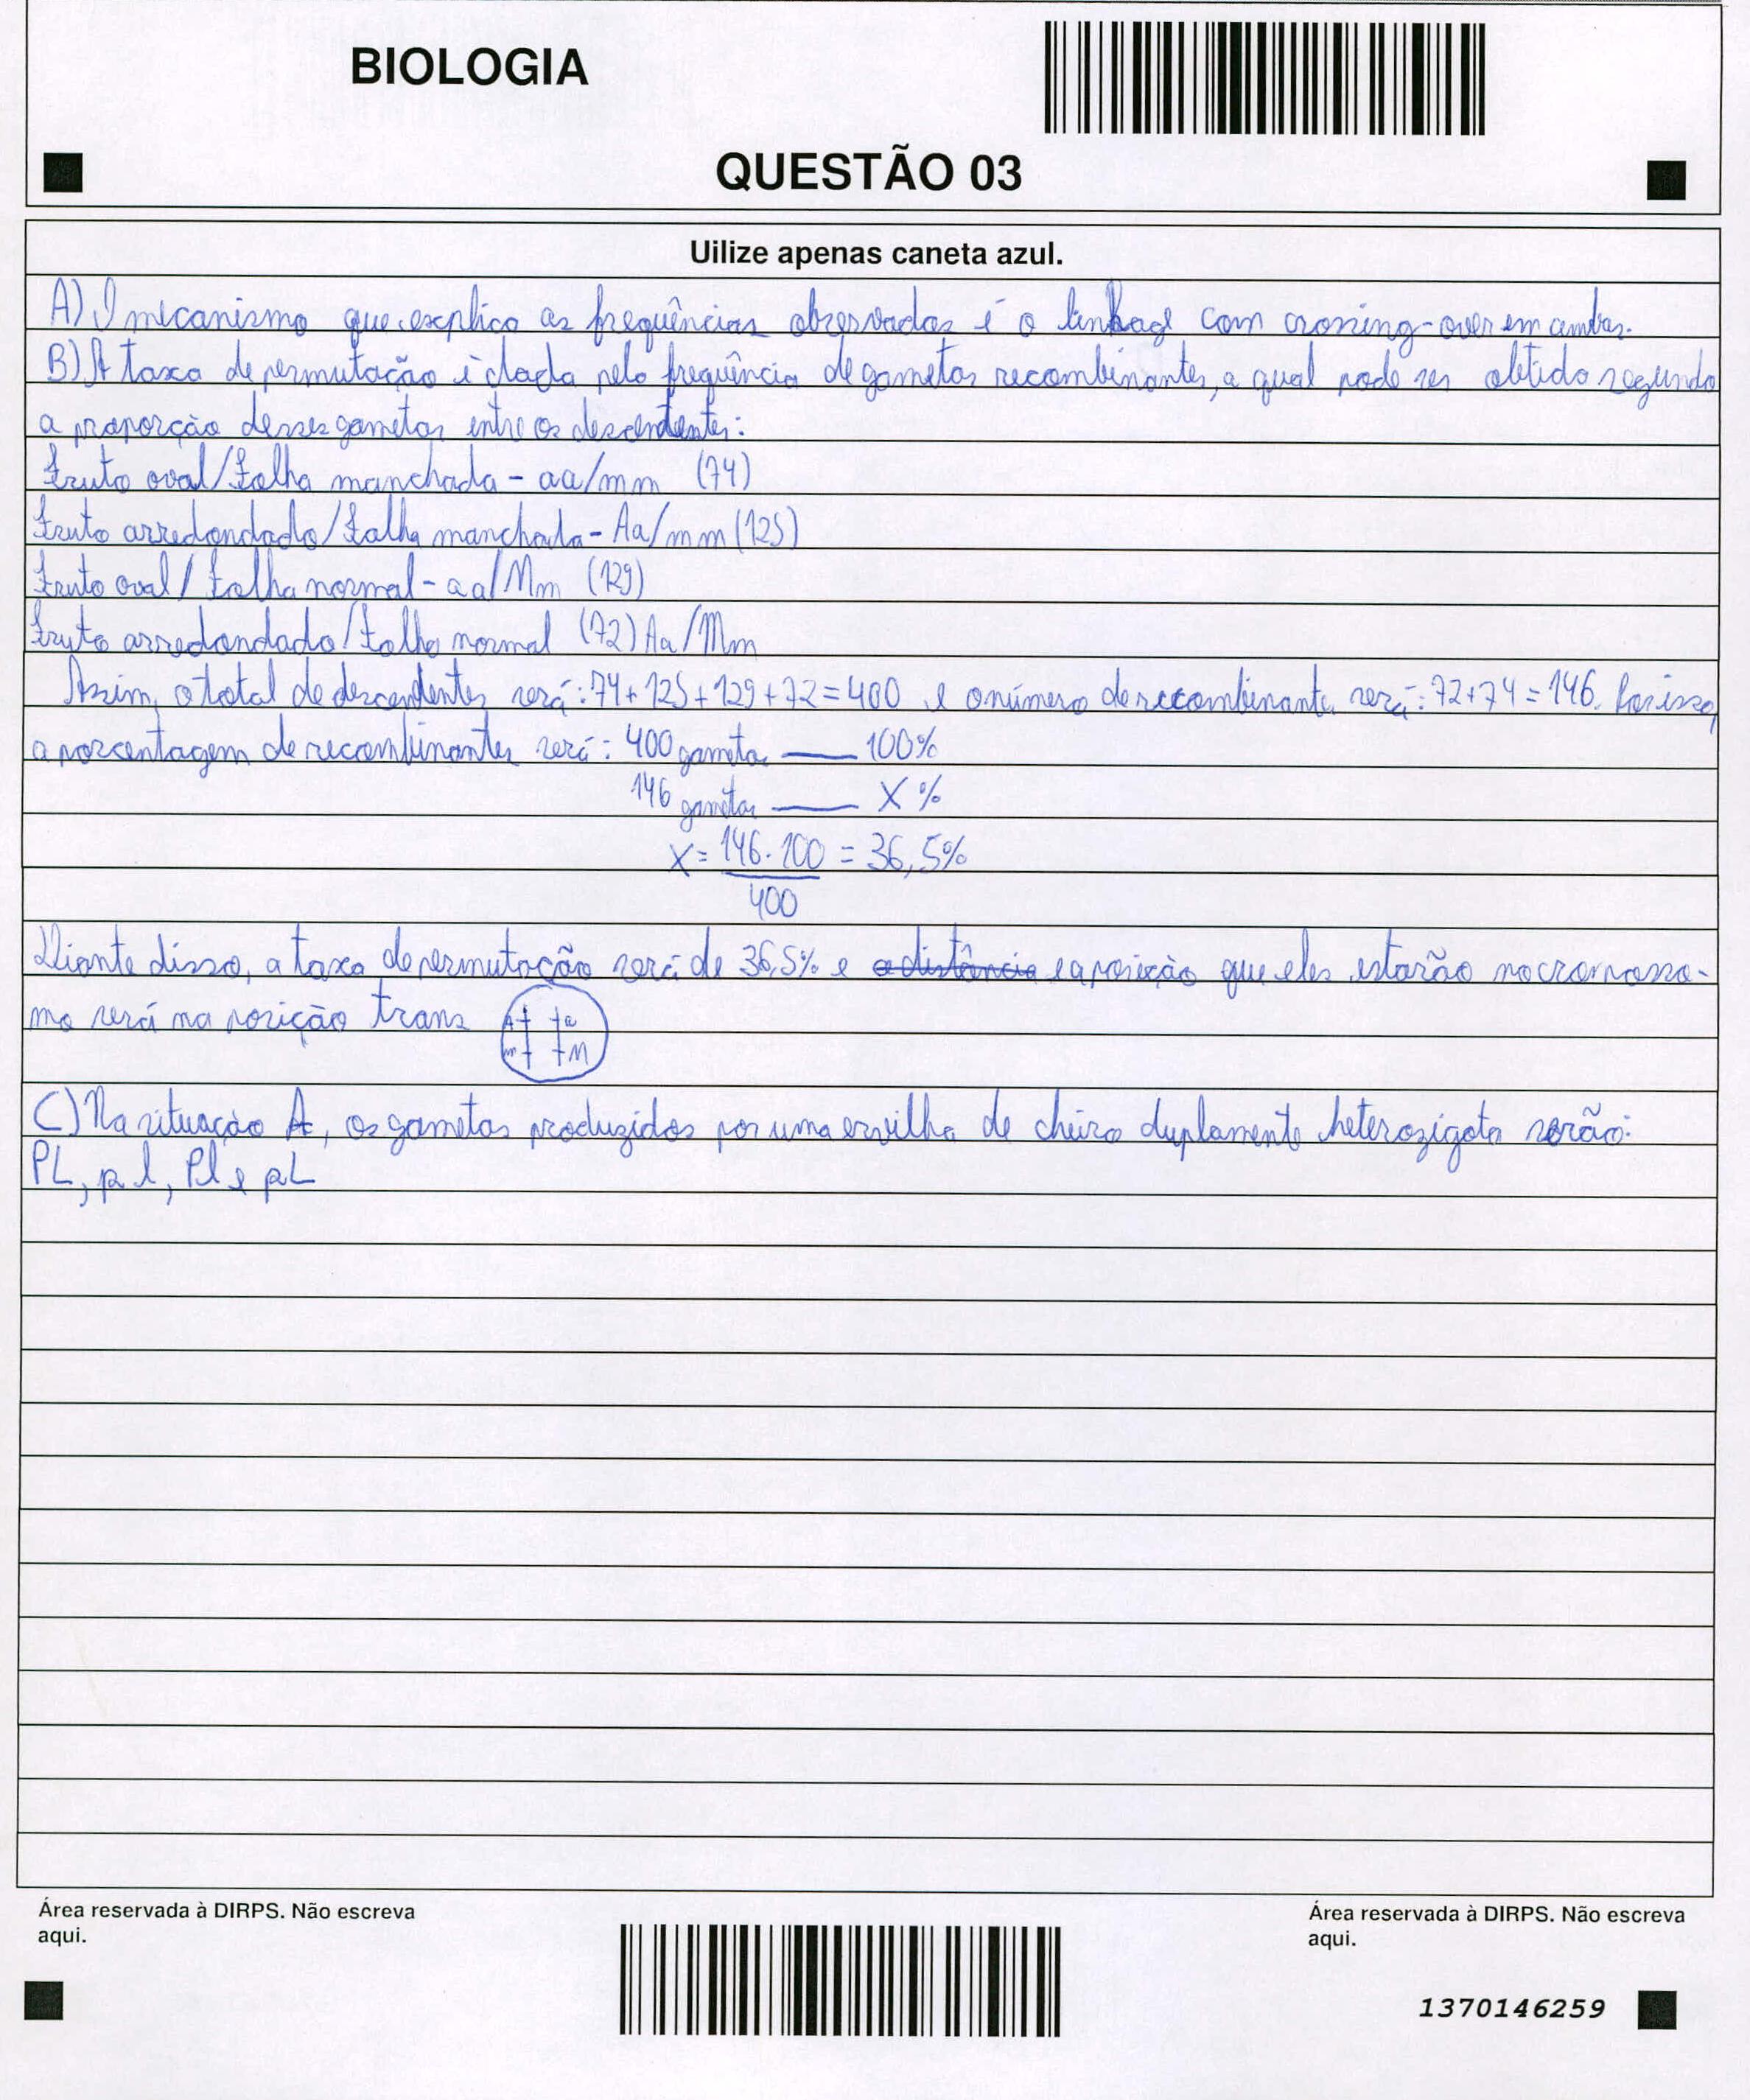 BIOLOGIA
QUESTÃO 03
Uilize apenas caneta azul.
A) O mecanismo que explica as frequências observadas é o linkage com crossing-over em ambas.
B) A taxa de permutação é dada pela frequência de gametas recombinantes, a qual pode ser obtida segundo
a proporção desses gametas entre os descendentes:
Fruto oval/Folha manchada - aa/mm (74)
Fruto arredondado/Folha manchada - Aa/mm (125)
Fruto oval/Folha normal - aa/Mm (129)
Fruto arredondado/Folha normal (72) Aa/Mm
Assim, o total de descendentes será: 74+125+129+72=400 e o número de recombinante será: 72+74=146. Por isso,
a porcentagem de recombinantes será: 400 gametas — 100%
146 gametas — X %
X = 146 . 100 = 36,5%
400
Diante disso, a taxa de permutação será de 36,5% e a distância e a posição que eles estarão no cromosso-
mo será na posição trans A a
m M
C) Na situação A, os gametas produzidos por uma ervilha de cheiro duplamente heterozigota serão:
PL, pl, Pl e pL
Área reservada à DIRPS. Não escreva
aqui.
Área reservada à DIRPS. Não escreva
aqui.
1370146259